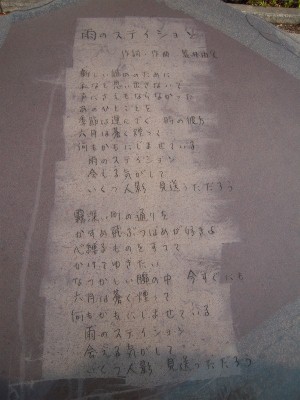 雨のステイション
作詞・作曲 荒井由実
新しい誰かのために
わざと思い出さないで
声にさえもならなかった
あのひとことを
季節は運んでく 時の彼方
六月は蒼く煙って
何もかもにじませている
雨のステイション
会える気がして
いくつ人影 見送っただろう
霧深い町の通りを
かすめ飛ぶつばめが好きよ
心縛るものをすてて
かけてゆきたい
なつかしい腕の中 今すぐにも
六月は蒼く煙って
何もかもにじませている
雨のステイション
会える気がして
いくつ人影 見送っただろう